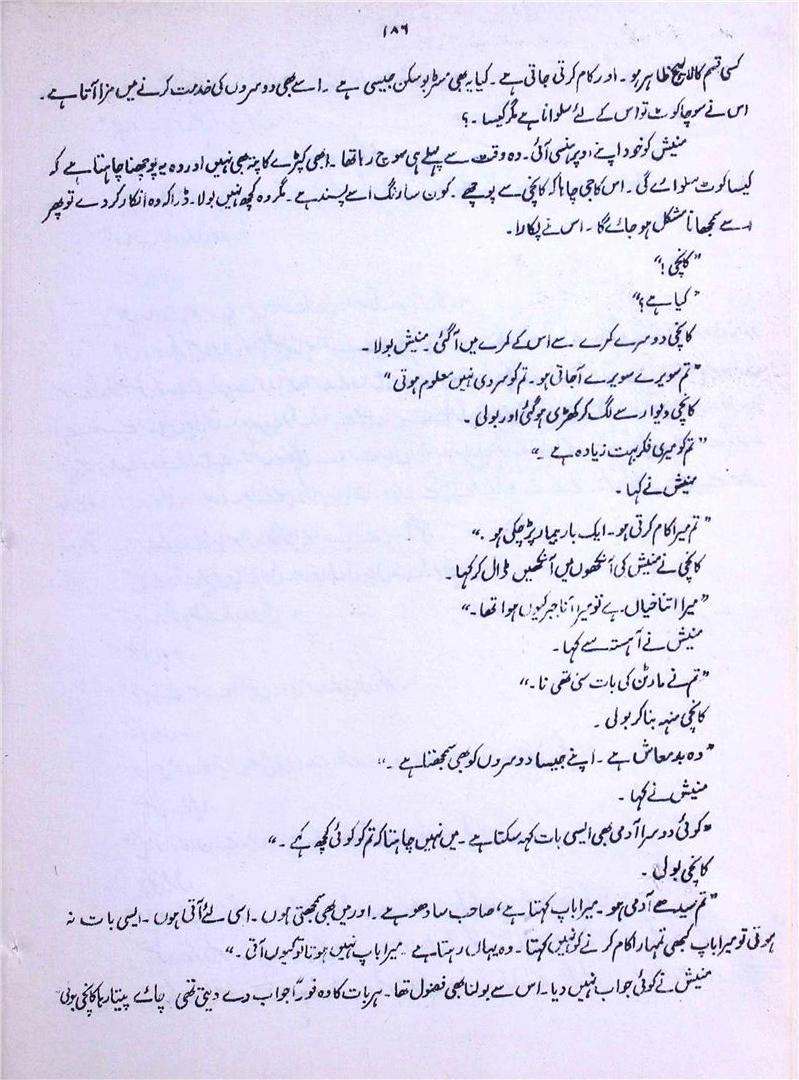 ۱۸۶
کسی قسم کا لالچ ظاہر ہو۔ اور کام کرتی جاتی ہے۔ کیا یہ بھی مسٹر بوسکن جیسی ہے۔ اسے بھی دوسروں کی خدمت کرنے میں مزا آتا ہے۔
اس نے سوچا کوٹ تو اس کے لئے سلوانا ہے مگر کیسا۔؟
منیش کو خود اپنے اوپر ہنسی آئی۔ وہ وقت سے پہلے ہی سوچ رہا تھا۔ ابھی کپڑے کا پتہ بھی نہیں اور وہ یہ پوچھنا چاہتا ہے کہ
کیسا کوٹ سلوائے گی۔ اس کا جی چاہا کہ کانچی سے پوچھے۔ کون سا رنگ اسے پسند ہے۔ مگر وہ کچھ نہیں بولا۔ ڈرا کہ وہ انکار کر دے تو پھر
اسے سمجھانا مشکل ہو جائے گا۔ اس نے پکارا۔
”کانچی!“
”کیا ہے؟“
کانچی دوسرے کمرے سے اس کے کمرے میں آ گئی، منیش بولا۔
”تم سویرے سویرے آجاتی ہو۔ تم کو سردی نہیں معلوم ہوتی“
کانچی دیوار سے لگ کر کھڑی ہو گئی اور بولی۔
”تم کو میری فکر بہت زیادہ ہے۔“
منیش نے کہا۔
”تم میرا کام کرتی ہو۔ ایک بار بیمار پڑ چکی ہو۔“
کانچی نے منیش کی آنکھوں میں آنکھیں ڈال کر کہا۔
”میرا اتنا خیال ہے تو میرا آنا جبر کیوں ہوا تھا۔“
منیش نے آہستہ سے کہا۔
”تم نے مارٹن کی بات سنی تھی نا۔“
کانچی منہ بنا کر بولی۔
”وہ بدمعاش ہے۔ اپنے جیسا دوسروں کو بھی سمجھتا ہے۔“
منیش نے کہا۔
”کوئی دوسرا آدمی بھی ایسی بات کہہ سکتا ہے۔ میں نہیں چاہتا کہ تم کو کوئی کچھ کہے۔“
کانچی بولی۔
”تم سیدھے آدمی ہو۔ میرا باپ کہتا ہے، صاحب سادھو ہے۔ اور میں بھی سمجھتی ہوں۔ اسی لئے آتی ہوں۔ ایسی بات نہ
ہوتی تو میرا باپ کبھی تمہارا کام کرنے کو نہیں کہتا۔ وہ یہاں رہتا ہے۔ میرا باپ نہیں ہوتا تو کیوں آتی۔“
منیش نے کوئی جواب نہیں دیا۔ اس سے بولنا بھی فضول تھا۔ ہر بات کا وہ فوراً جواب دے دیتی تھی۔ چائے پیتا رہا کانچی بولی